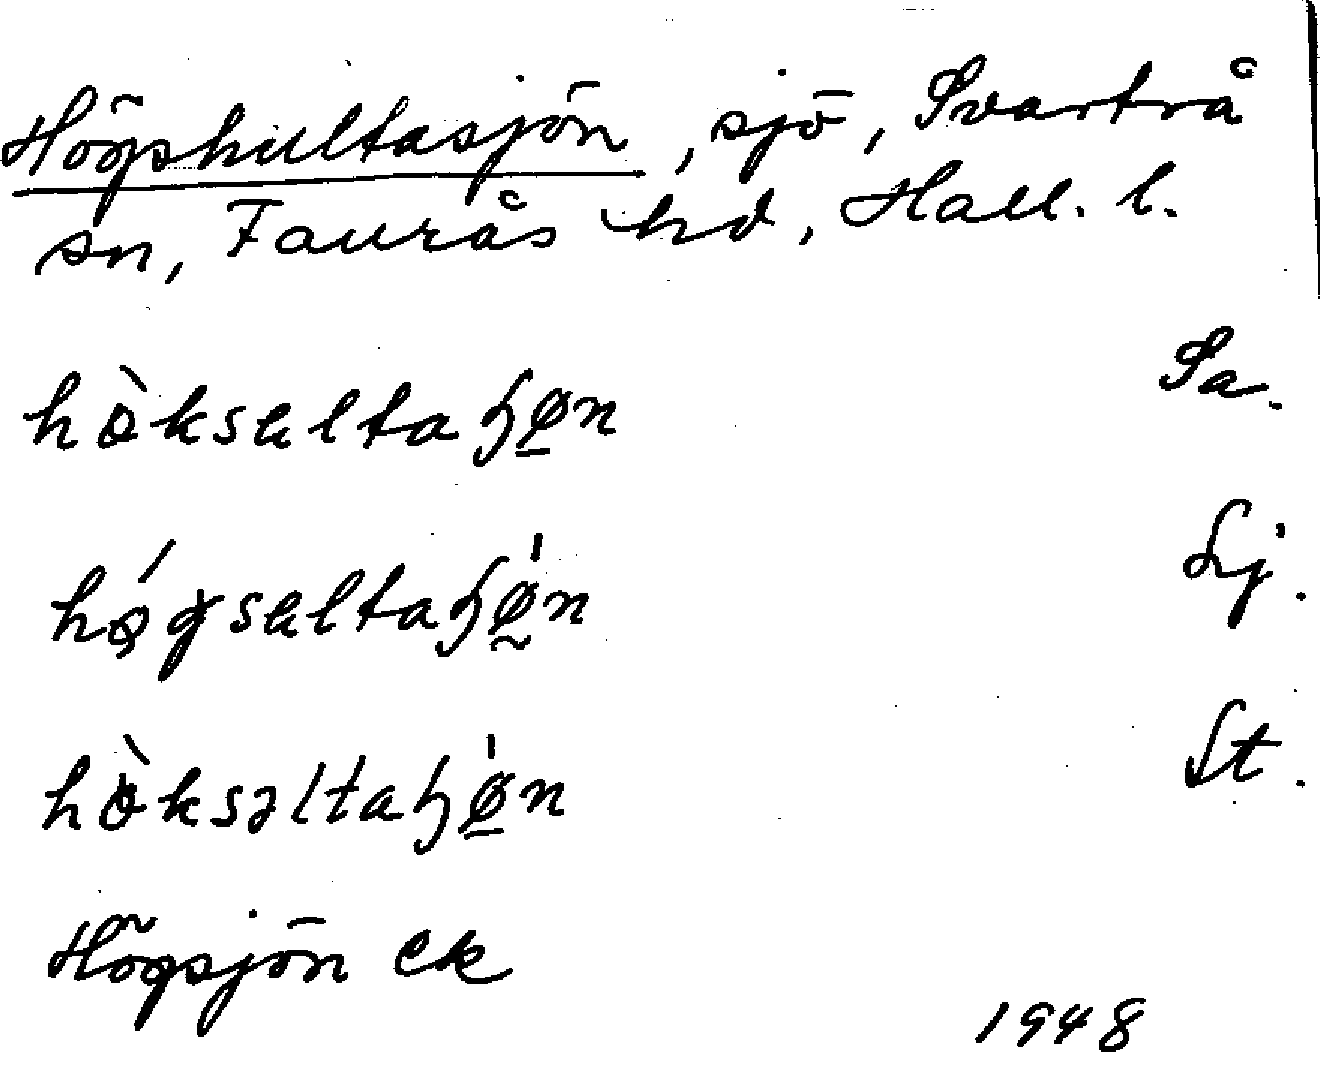 Högshultasjön, sjö, Svartrå
sn, Faurås hd, Hall. l.
hò̤ksɐltaɧø̲n Sa.
hǿgsɐltaɧǿ̰n Lj.
hòksəltaɧǿ̲n St.
Högsjön ek
1948